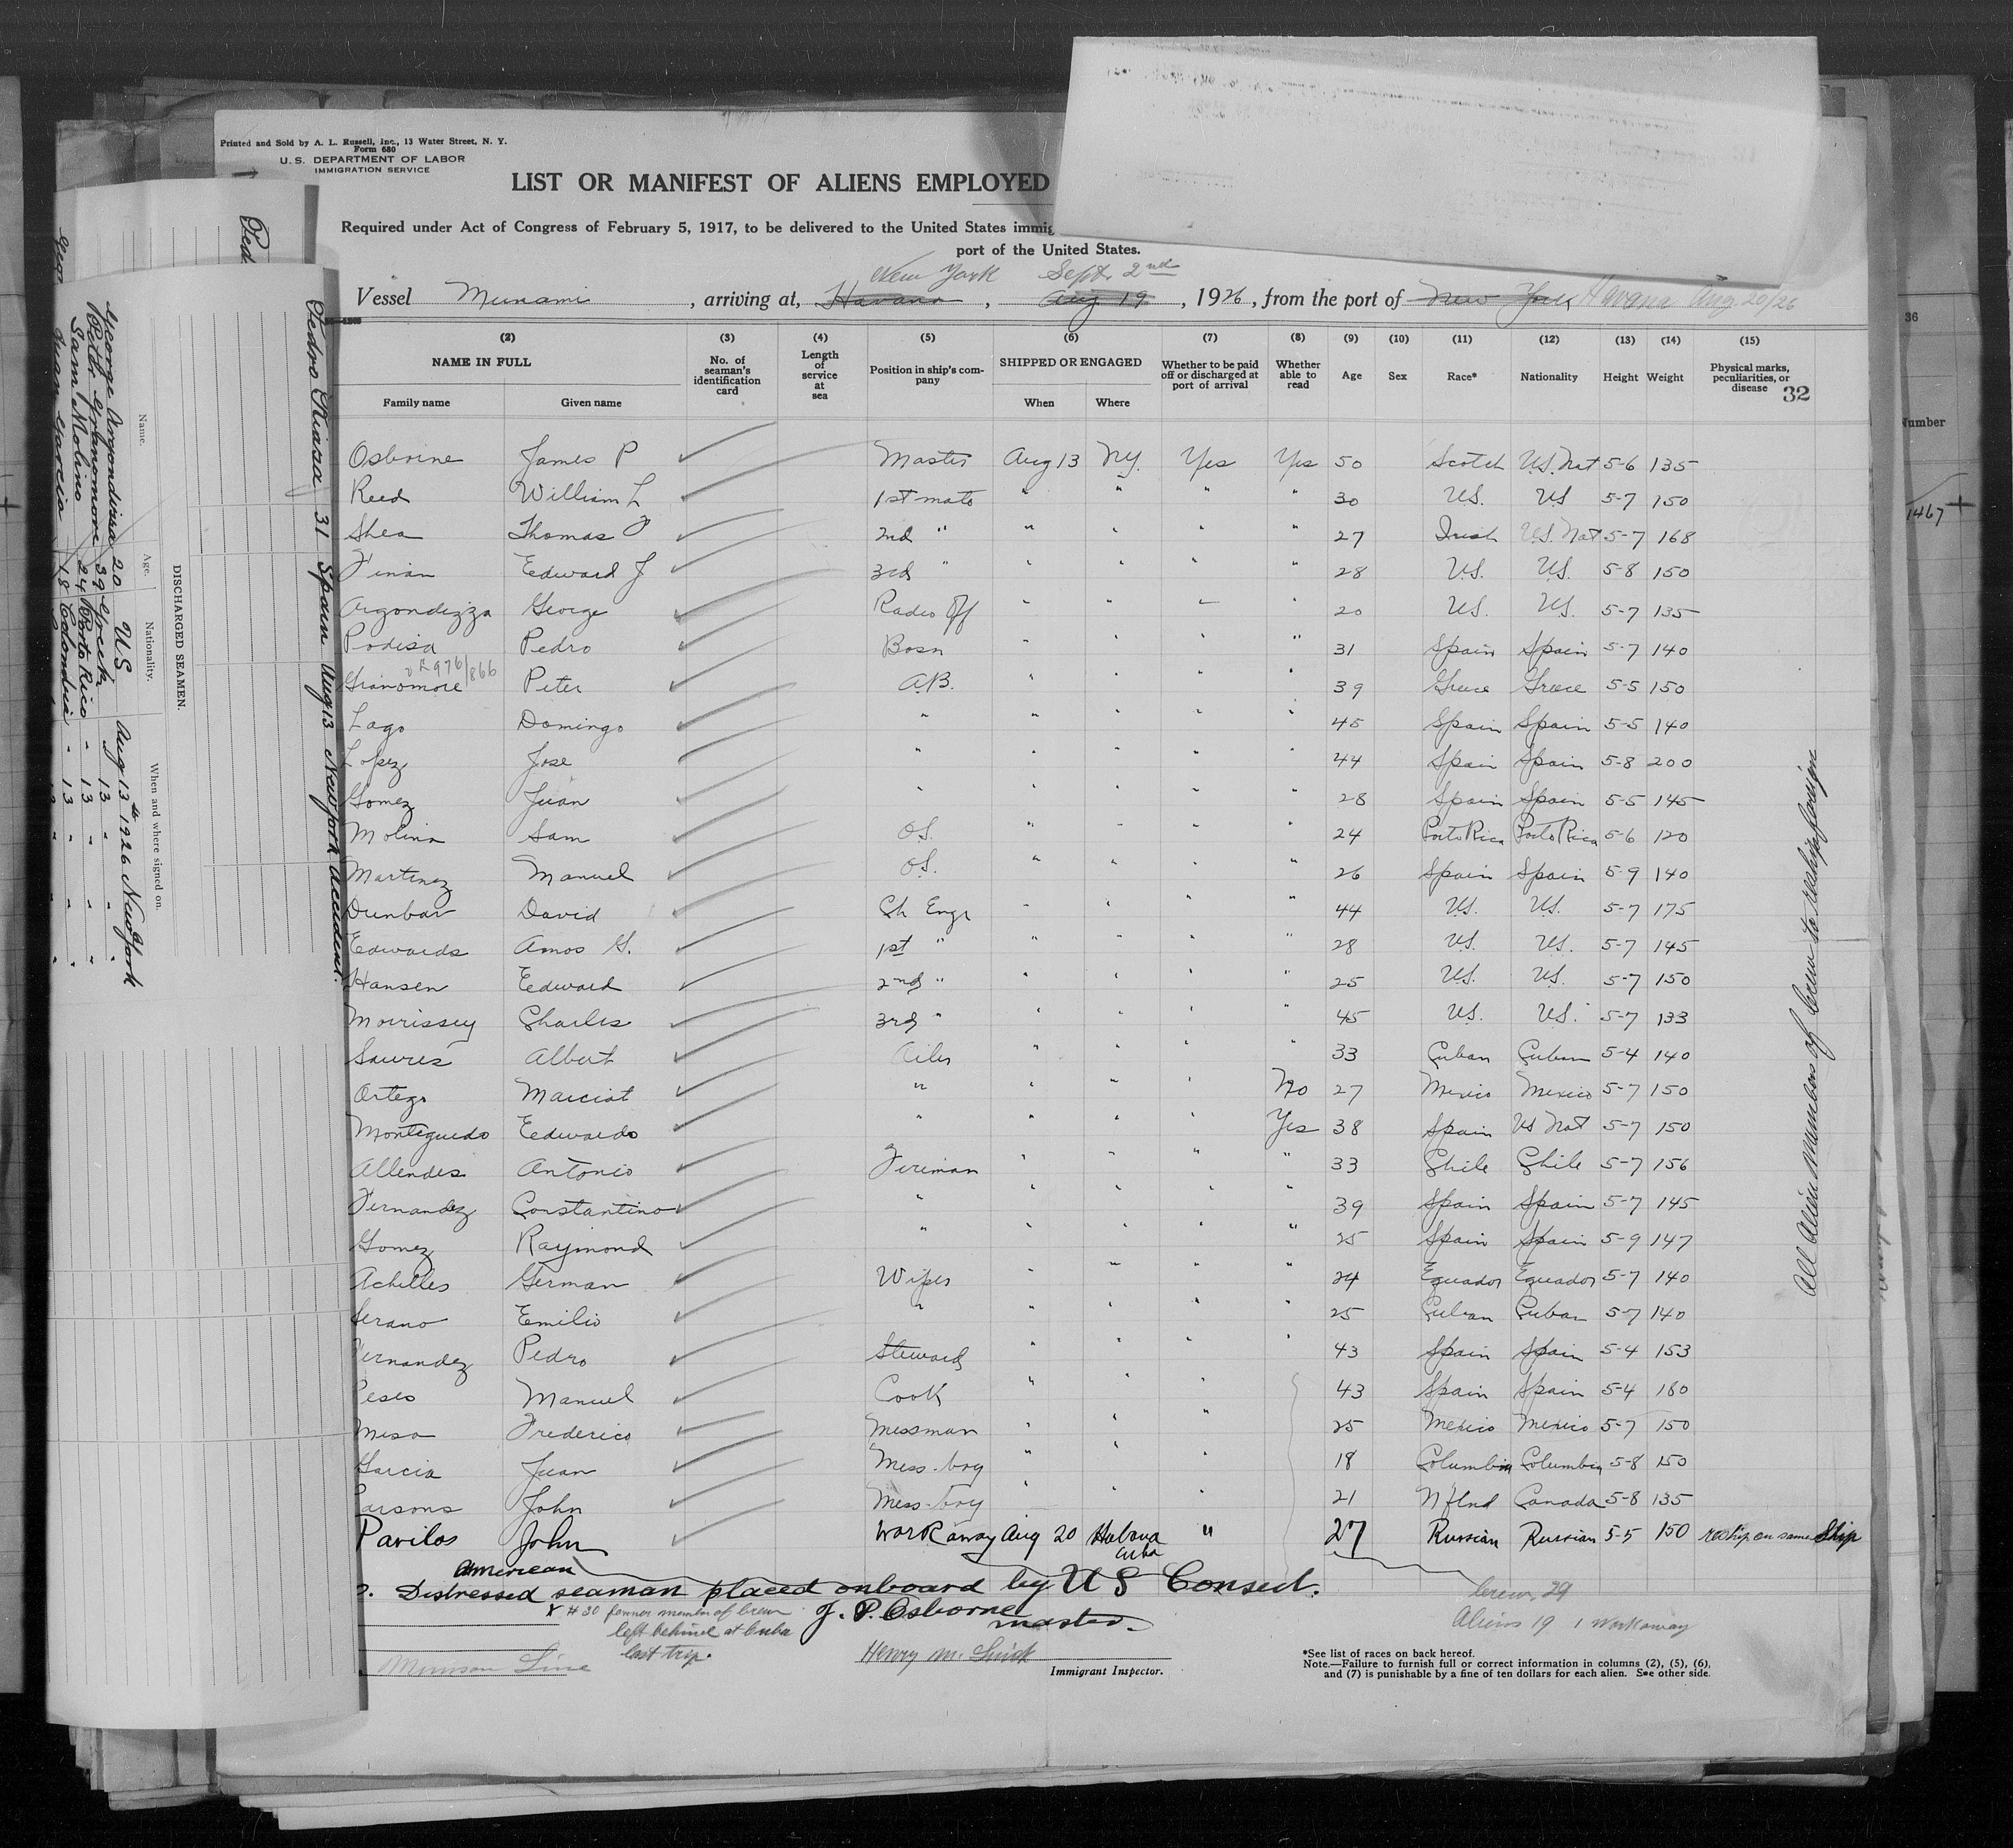 Printed and Sold by A. L. Russell, Inc., 13 Water Street, N. Y.
Form 680
U. S. DEPARTMENT OF LABOR
IMMIGRATION SERVICE
LIST OR MANIFEST OF ALIENS EMPLOYED
Required under Act of Congress of February 5, 1917, to be delivered to the United States immig
port of the United States.
New York Sept 2nd
Vessel Munami, arriving at, Havana, Aug 19, 1926, from the port of New York Havana Aug 20/26
(2) (3) (4) (5) (6) (7) (8) (9) (10) (11) (12) (13) (14) (15)
NAME IN FULL No. of seaman's identification card Length of service at sea Position in ship's company SHIPPED OR ENGAGED Whether to be paid off or discharged at port of arrival Whether able to read Age Sex Race* Nationality Height Weight Physical marks, peculiarities, or disease 32
Family name Given name When Where
Osborne James P Master Aug 13 N.Y. Yes Yes 50 Scotch U.S. Nat 5-6 135
Reed William L 1st mate " " " " 30 U.S. US 5-7 150
Shea Thomas F 2nd " " " " " 27 Irish U.S. Nat 5-7 168
Finan Edward J 3rd " " " " " 28 U.S. U.S. 5-8 150
Argondizza George Radio Off " " " " 20 U.S. U.S. 5-7 135
Podisa Pedro Bosn " " " " 31 Spain Spain 5-7 140
976/866
Gianomore Peter A.B. " " " " 39 Greece Greece 5-5 150
Lago Domingo " " " " " 45 Spain Spain 5-5 140
Lopez Jose " " " " " 44 Spain Spain 5-8 200
Gomez Juan " " " " " 28 Spain Spain 5-5 145
Molina Sam O.S. " " " " 24 Porto Rica Porto Rica 5-6 120
Martinez Manuel O.S. " " " " 26 Spain Spain 5-9 140
Dunbar David Ch Engr " " " " 44 U.S. U.S. 5-7 175
Edwards Amos G. 1st " " " " " 28 U.S. U.S. 5-7 145
Hansen Edward 2nd " " " " " 25 U.S. U.S. 5-7 150
Morrissey Charles 3rd " " " " " 45 U.S. U.S. 5-7 133
Saures Albert Oiler " " " " 33 Cuban Cuban 5-4 140
Ortego Marciat " " " " No 27 Mexico Mexico 5-7 150
Monteguedo Eedwardo " " " " Yes 38 Spain US Nat 5-7 150
Allendes Antonio Fireman " " " " 33 Chile Chile 5-7 156
Fernandez Constantino " " " " " 39 Spain Spain 5-7 145
Gomez Raymond " " " " " 25 Spain Spain 5-9 147
Achilles German Wiper " " " " 24 Equador Equador 5-7 140
Serano Emilio " " " " " 25 Cuban Cuban 5-7 140
ernandez Pedro Steward " " " " 43 Spain Spain 5-4 153
Peses Manuel Cook " " " 43 Spain Spain 5-4 180
Mesa Frederico Messman " " " 25 Mexico Mexico 5-7 150
Garcia Juan Mess-boy " " " 18 Columbia Columbia 5-8 150
arsons John Mess-boy " " " 21 Nflnd Canada 5-8 135
Pavilos John Workaway Aug 20 Habana Cuba " 27 Russian Russian 5-5 150 reship on same Ship
american
Distressed seaman placed onboard by US Consul.
J. P. Osborne master
x #30 former member of crew left behind at Cuba last trip.
Munson Line
Henry M.
Immigrant Inspector.
Crew 29
Aliens 19 1 workaway
*See list of races on back hereof.
Note.—Failure to furnish full or correct information in columns (2), (5), (6), and (7) is punishable by a fine of ten dollars for each alien. See other side.
All Alien Members of Crew to reship foreign
DISCHARGED SEAMEN.
Name. Age. Nationality. When and where signed on.
George Argondizza 20 U.S Aug 13th 1926 New York
Peter Gianomore 39 Greek " 13 " "
Sam Molino 24 Porto Rico " 13 " "
Juan Garcia 18 Colombia " 13 " "
Pedro 31 Spain Aug 13 New York Accident.
Ped
36
Number
1467